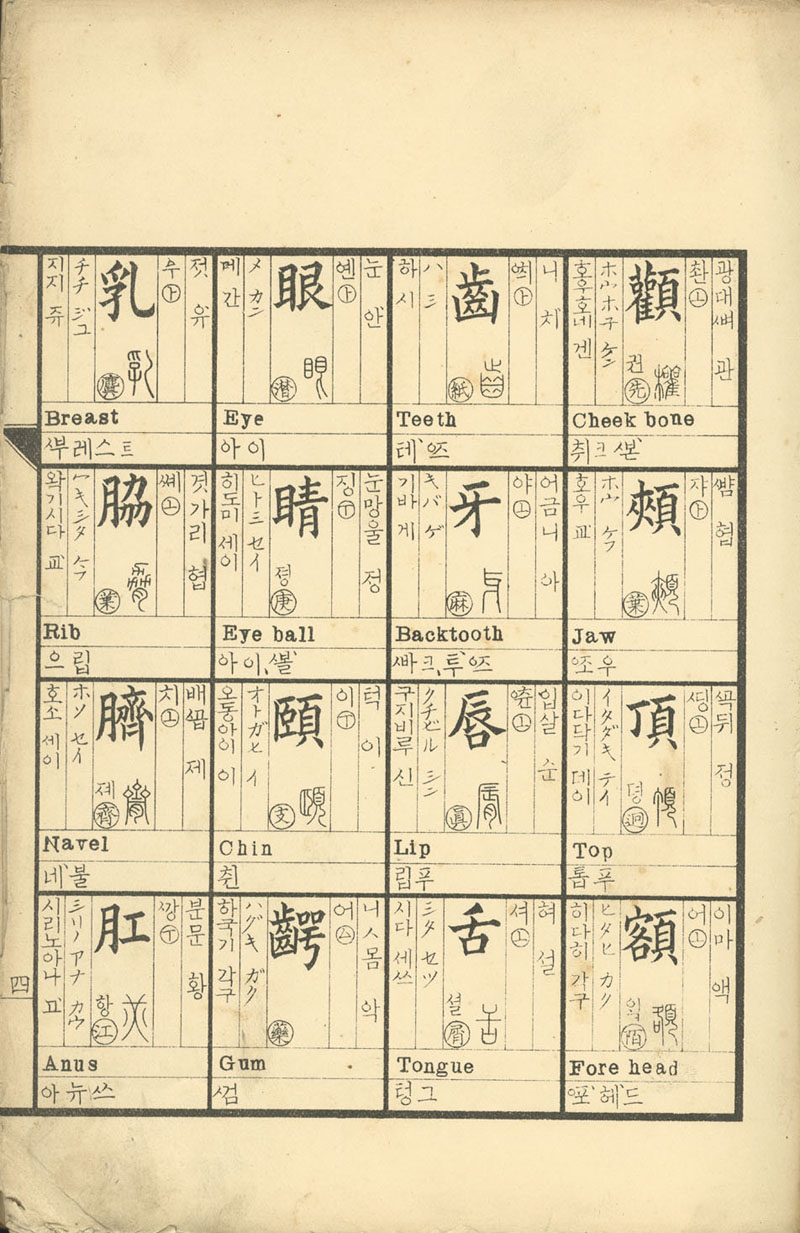 광대뼈 관
촨 ㊤
顴
권 先
ホウホ子 ケン
호우호네 겐
Cheek bone
취크
뺨 협
쟈
頰
葉
ホウ ケフ
호우 교
Jaw
쪼우
꼭뒤 정
띵
頂
뎡 迥
イタダキ テイ
이다다기 데이
Top
톱푸
이마 액
어
額
ヒタヒ カク
히다히 가구
Fore head
헤드
니 치
齒
紙
ハ シ
하 시
Teeth
어금니 아
야
牙
麻
キバ ゲ
기바 게
Backtooth
입살 순
脣
眞
クチビル シン
구지비루 신
Lip
립푸
혀 설
셔
舌
셜 屑
シタ セツ
시다 세쓰
Tongue
텅그
눈 안
옌
眼
潸
メ カン
메 간
Eye
아이
눈망울 정
징
睛
졍 庚
ヒトミ セイ
히도미 세이
Eye ball
아이
턱 이
이
頤
支
オトガヒ イ
오동아이 이
Chin
췬
니스몸 악
어
齶
藥
ハグキ ガク
하국기 각구
Gum
껌
젓 유
乳
チチ ジユ
지지 쥬
Breast
갈가리 협
脇
業
ワキシタ ケフ
왁기시다 교
Rib
으립
배꼽 제
치
臍
졔 齊
ホソ セイ
호소 세이
Navel
네불
분문 황
깡
肛
항 江
シリノアナ カウ
시리노아나 고
Anus
아뉴쓰
四